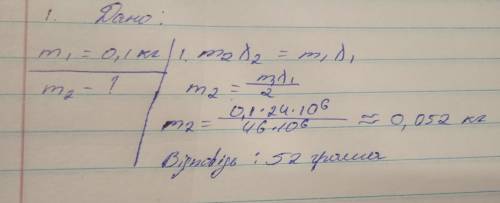 1. Дано:
m₁ = 0,1 кг
m₂ - ?
1. m₂λ₂ = m₁λ₁
m₂ = m₁λ₁ / 2
m₂ = 0,1·24·10⁶ / 46·10⁶ ≈ 0,052 кг
Відповідь : 52 грама